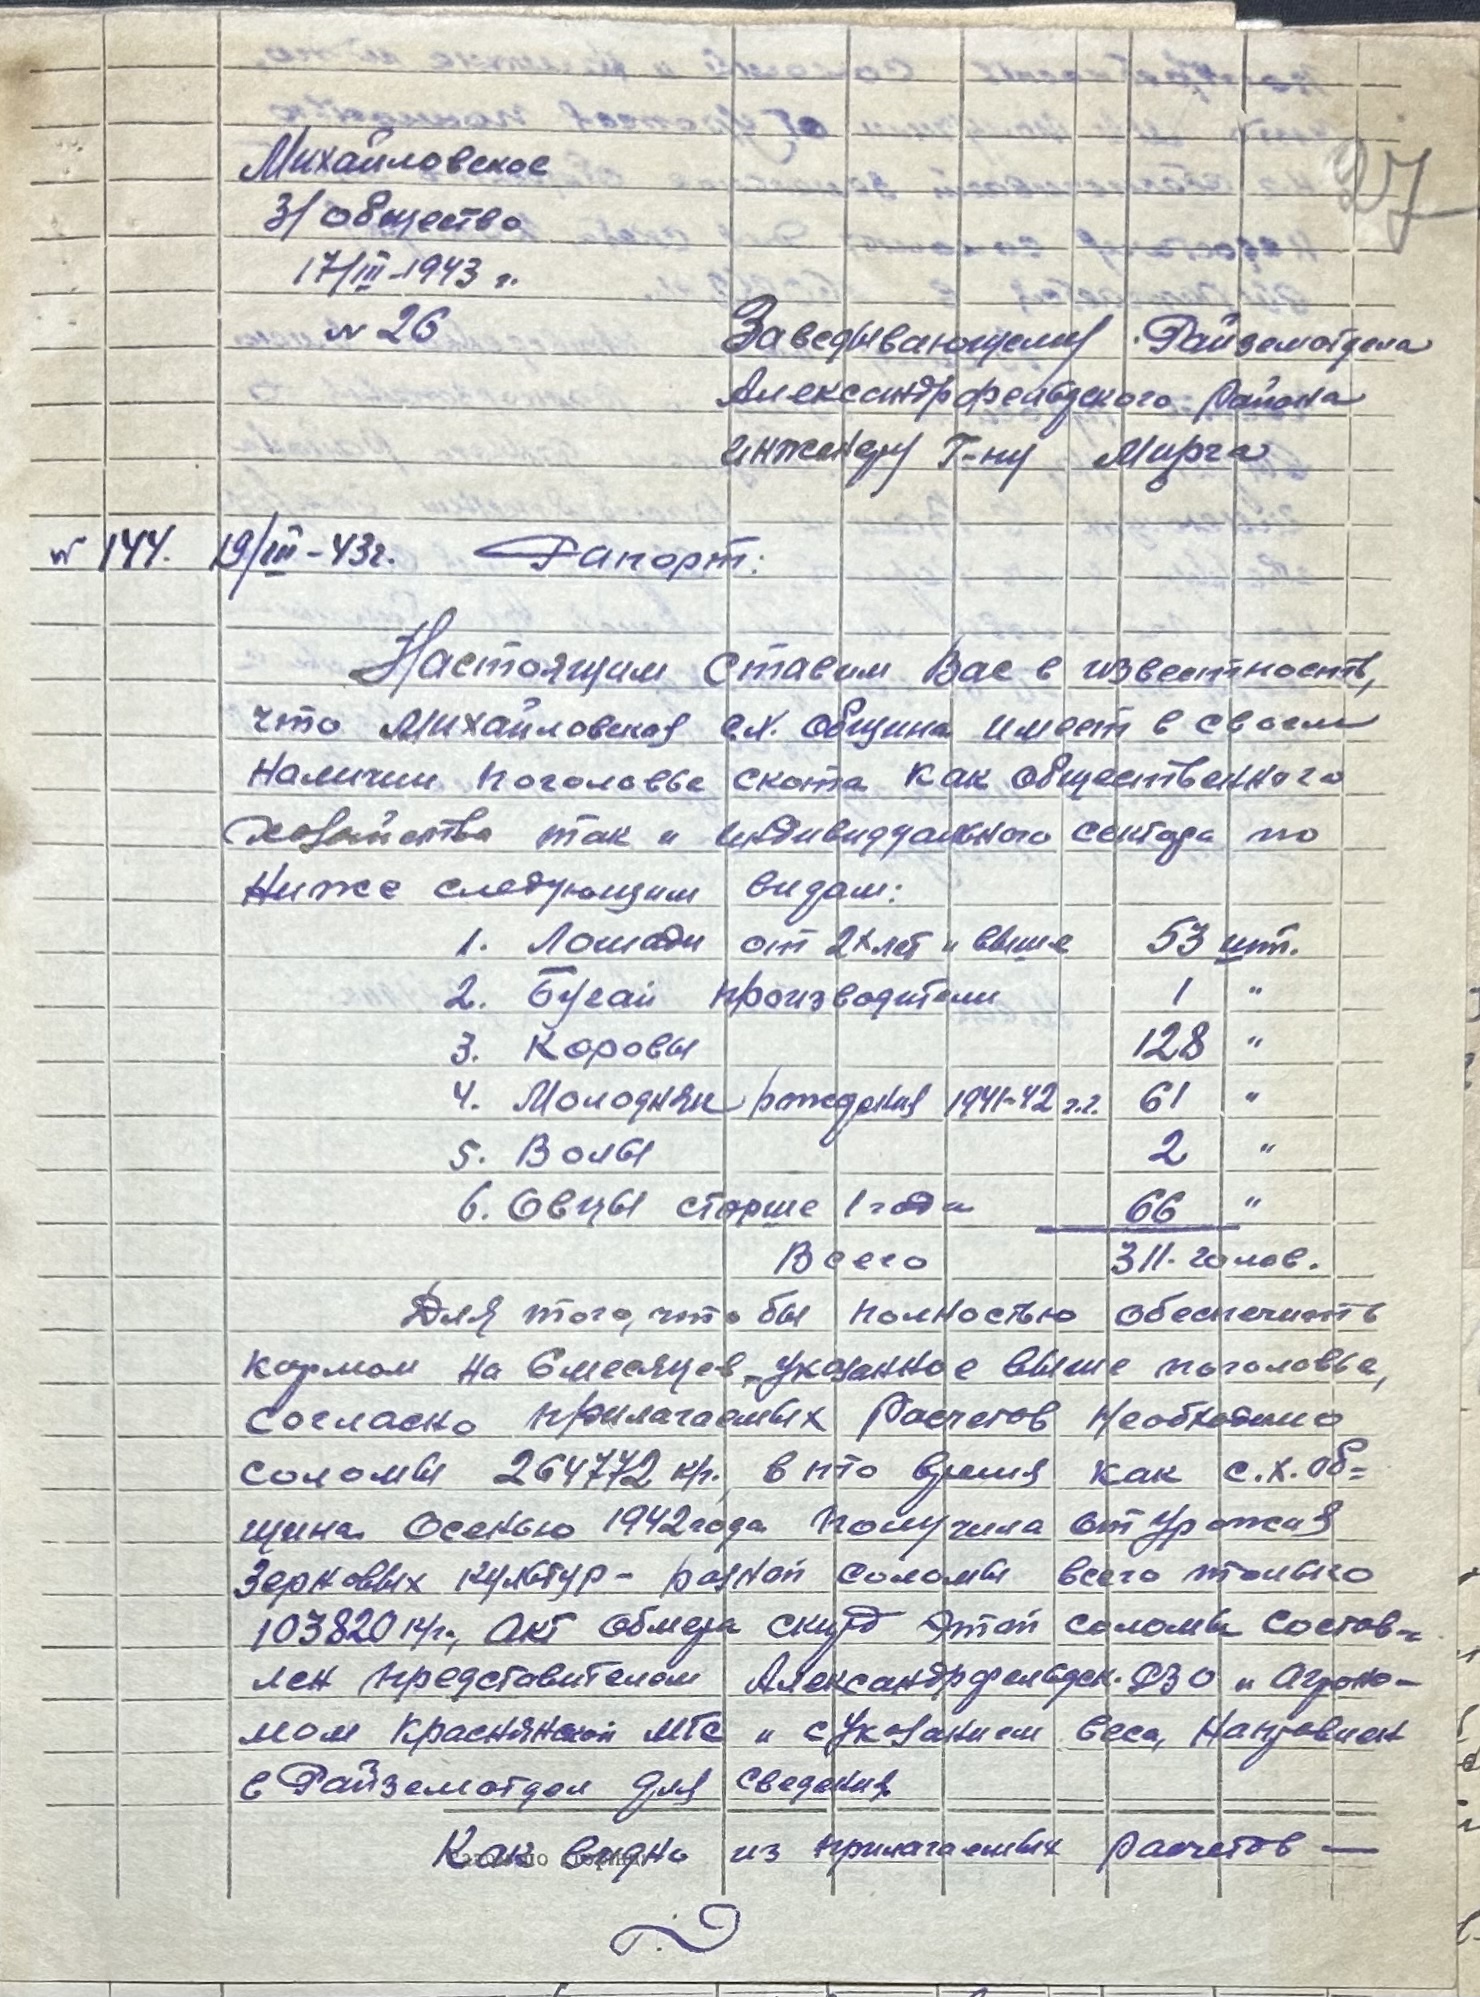 27
Михайловское
З/Общество
17/III-1943 г.
№ 26
Заведывающему Райземотдела
Александрфельдского района
инженеру Г-ну Мирга
№ 144. 19/III-43г. Рапорт:
Настоящим ставим Вас в известность,
что Михайловская с.х. община имеет в своем
наличии поголовье скота как общественного
хозяйства так и индивидуального сектора по
ниже следующим видам:
1. Лошади от 2х лет и выше 53 шт.
2. Бугай производители 1 "
3. Коровы 128 "
4. Молодняк рождения 1941-42 г.г. 61 "
5. Волы 2 "
6. Овцы старше 1 года 66 "
Всего 311. голов.
Для того, что бы полностью обеспечить
кормом на 6 месяцев указанное выше поголовье,
согласно прилагаемых расчетов необходимо
соломы 264772 кг., в то время как с.х. об=
щина осенью 1942 года получила от урожая
зерновых культур - разной соломы всего только
103820 кг., акт обмера скирд этой соломы состав-
лен представителем Александрфельдск. РЗО и агроно-
мом Краснянской МТС и с указанием веса, направлен
в Райземотдел для сведения.
Как видно из прилагаемых расчетов —